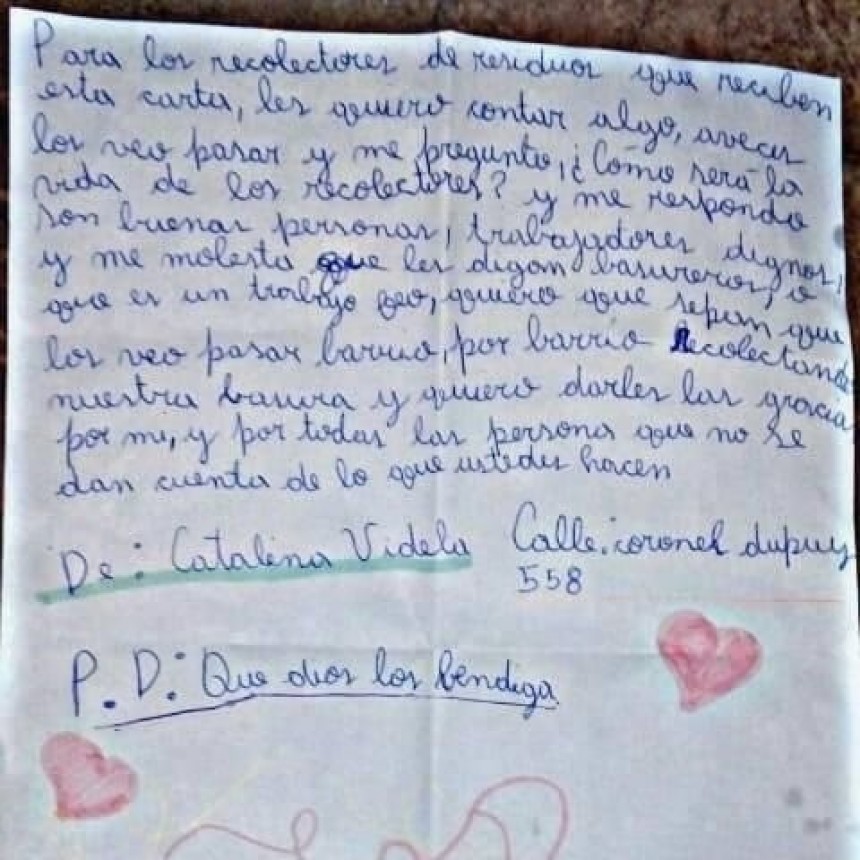 Para los recolectores de residuos que reciben
esta carta, les quiero contar algo, aveces
los veo pasar y me pregunto, ¿Cómo será la
vida de los recolectores? y me respondo
son buenas personas, trabajadores dignos,
y me molesta que les digan basureros, o
que es un trabajo feo, quiero que sepan que
los veo pasar barrio, por barrio Recolectando
nuestra basura y quiero darles las gracia
por mi, y por todas las persona que no se
dan cuenta de lo que ustedes hacen
De: Catalina Videla Calle: coronel dupuy
558
P.D: Que dios los bendiga